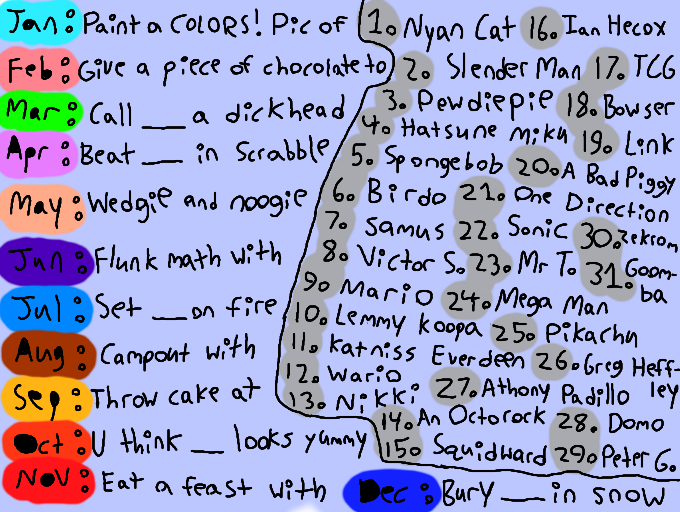 Jan: Paint a COLORS! Pic of
Feb: Give a piece of chocolate to
Mar: Call ___ a dickhead
Apr: Beat ___ in Scrabble
May: Wedgie and noogie
Jun: Flunk math with
Jul: Set ___ on fire
Aug: Campout with
Sep: Throw cake at
Oct: U think ___ looks yummy
Nov: Eat a feast with
Dec: Bury ___ in snow
1. Nyan Cat
2. Slender Man
3. Pewdiepie
4. Hatsune miku
5. Spongebob
6. Birdo
7. Samus
8. Victor S.
9. Mario
10. Lemmy koopa
11. Katniss Everdeen
12. Wario
13. Nikki
14. An Octorock
15. Squidward
16. Ian Hecox
17. TCG
18. Bowser
19. Link
20. A Bad Piggy
21. One
Direction
22. Sonic
23. Mr T.
24. Mega Man
25. Pikachu
26. Greg Heff-
ley
27. Athony Padillo
28. Domo
29. Peter G.
30. Zekrom
31. Goom-
ba